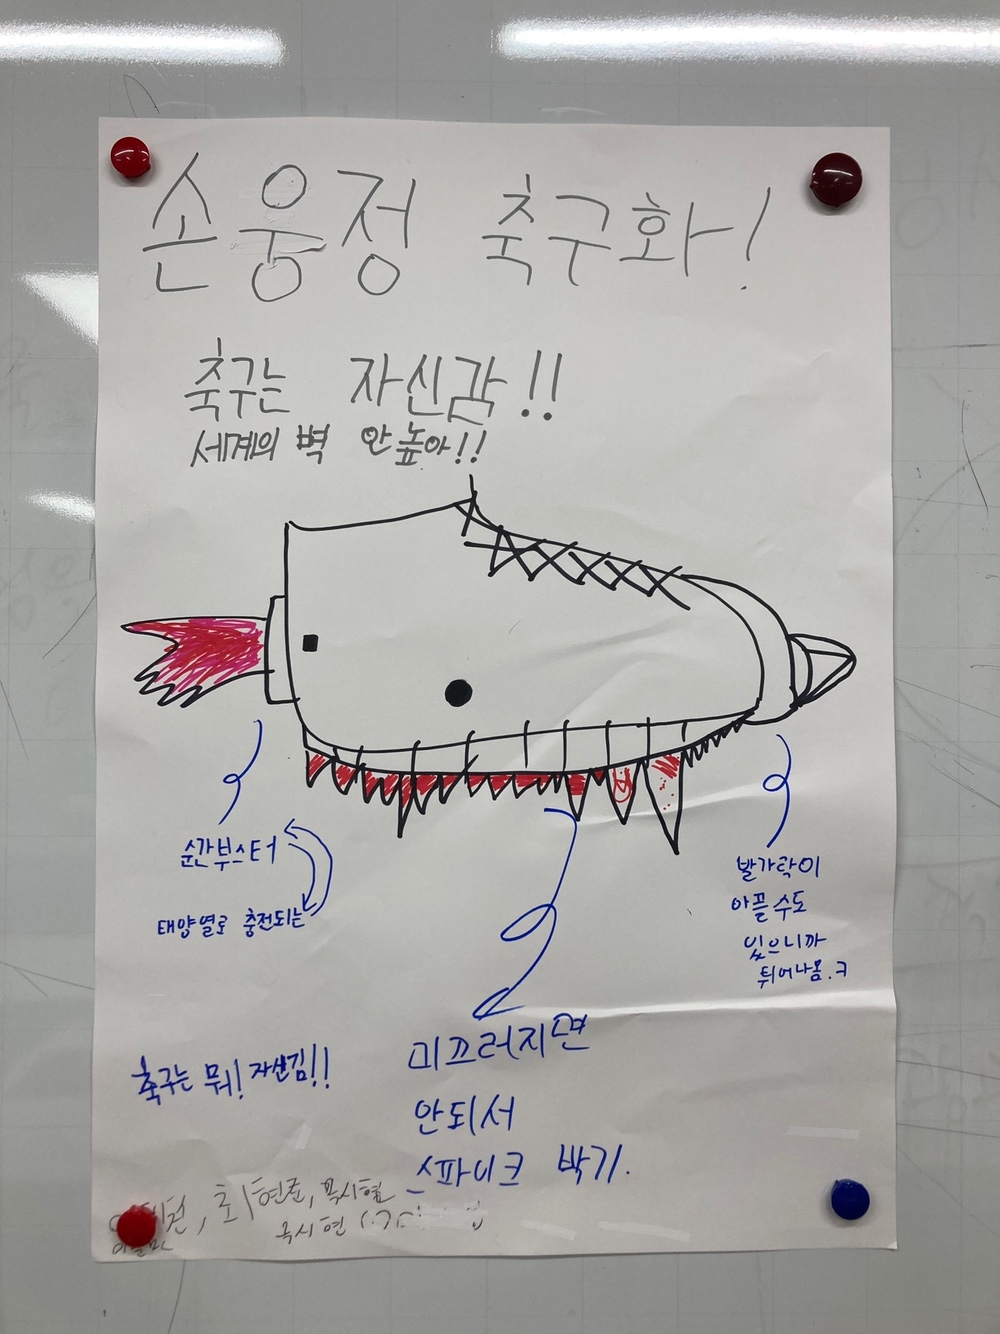 손웅정 축구화!
축구는 자신감!!
세계의 벽 안 높아!!
순간부스터
태양열로 충전되는
발가락이
아플 수도
있으니까
튀어나옴.ㅋ
미끄러지면
안되서
스파이크 박기.
축구는 뭐! 자신김!!
최현준,
옥시현